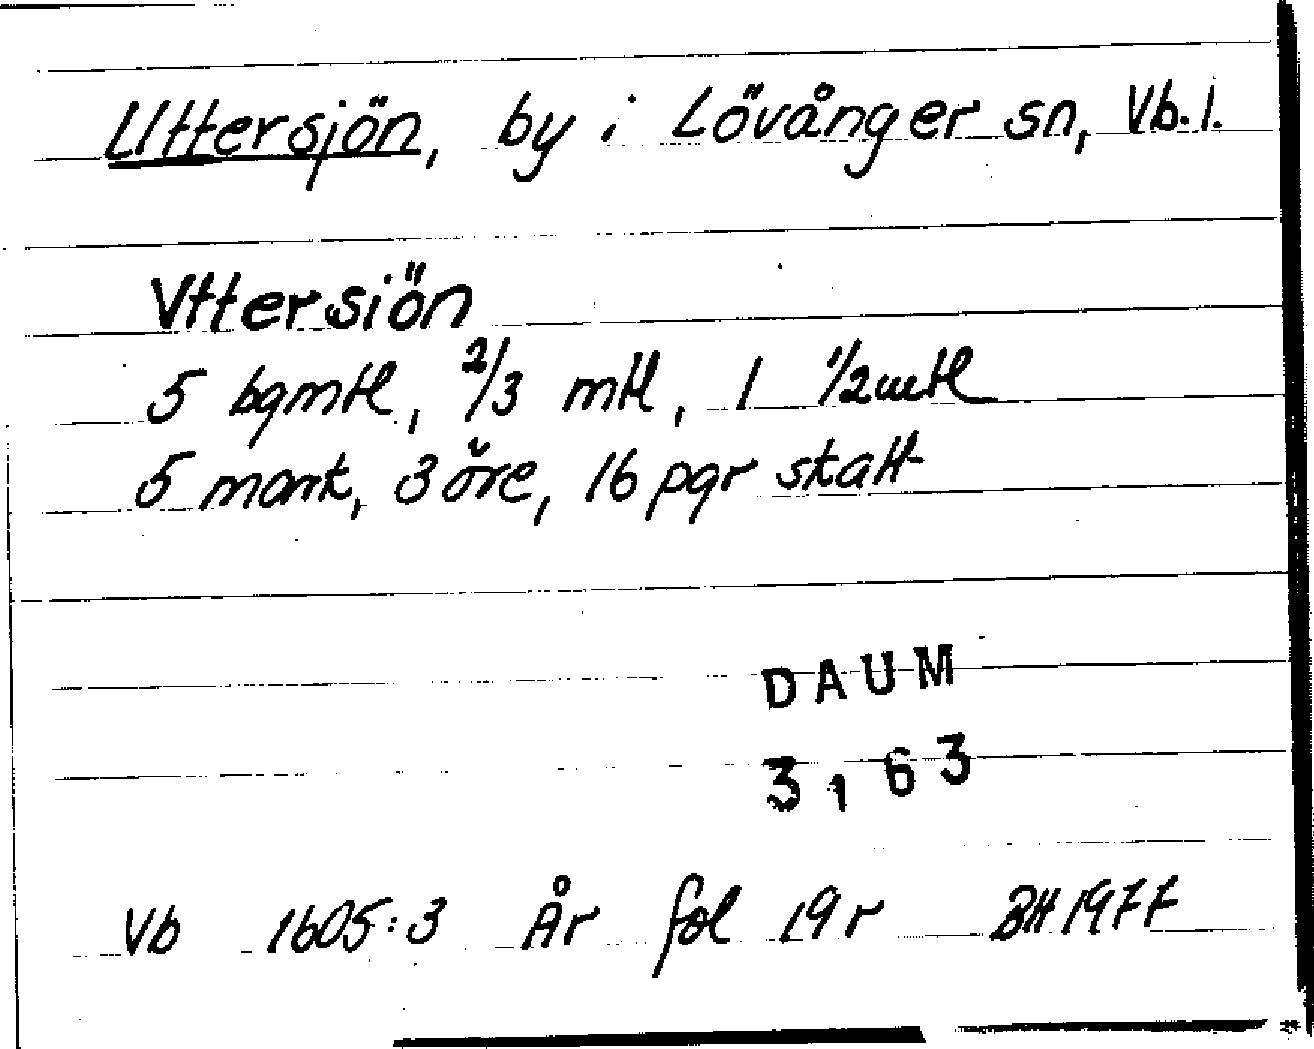 Uttersjön, by i Lövånger sn, Vb. l.
Vttersiön
5 bgmtl, 2/3 mtl, 1 1/2 mtl
5 mark, 3 öre, 16 pgr skatt
DAUM
3163
Vb 1605:3 År fol 19 r BH 1977